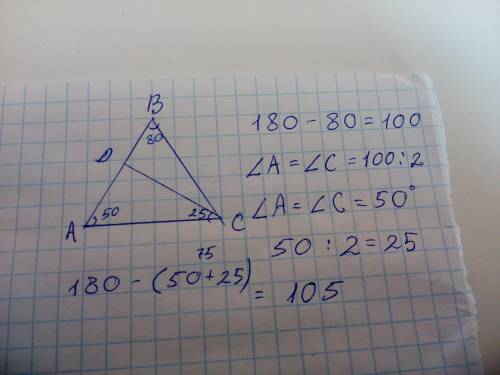 B
80
D
A 50 25 C
180 - 80 = 100
∠A = ∠C = 100 : 2
∠A = ∠C = 50°
50 : 2 = 25
75
180 - (50 + 25) = 105